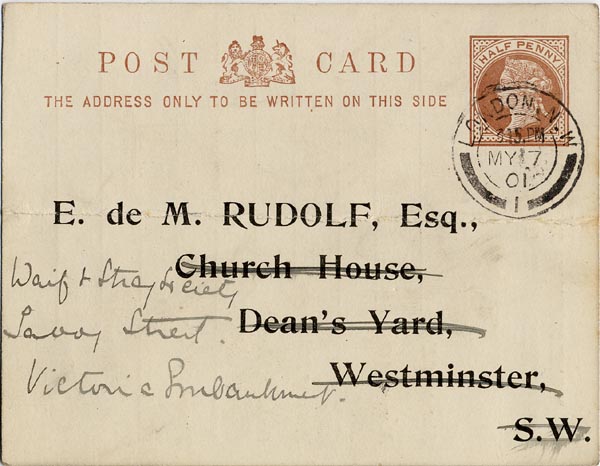 POST CARD
THE ADDRESS ONLY TO BE WRITTEN ON THIS SIDE
HALF PENNY
LONDON. N.W
15. PM
MY 17
01
1
E. de M. RUDOLF, Esq.,
Church House,
Waif & Stray Society
Dean's Yard,
Savoy Street.
Westminster,
Victoria Embankment.
S.W.